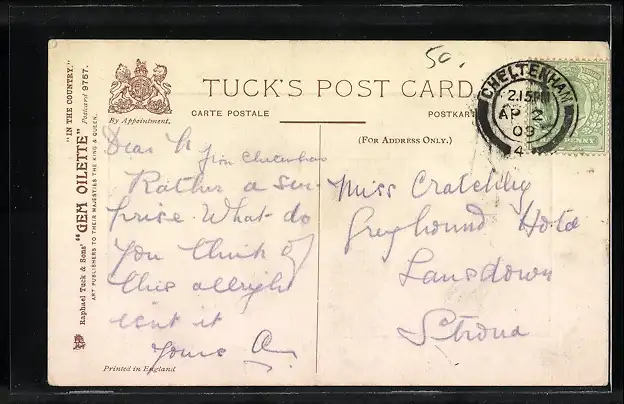 50.
TUCK'S POST CARD
CARTE POSTALE
POSTKART
By Appointment.
(FOR ADDRESS ONLY.)
CHELTENHAM
2.15PM
AP 2
09
4
PENNY
"IN THE COUNTRY."
Postcard 9757.
Raphael Tuck & Sons' "GEM OILETTE"
ART PUBLISHERS TO THEIR MAJESTIES THE KING & QUEEN.
Dear
from Cheltenham
Rather a sur-
prise. What do
you think of
this allright
isn't it
Yours A
Miss Cratchley
Greyhound Hotel
Lansdown
Stroud
Printed in England